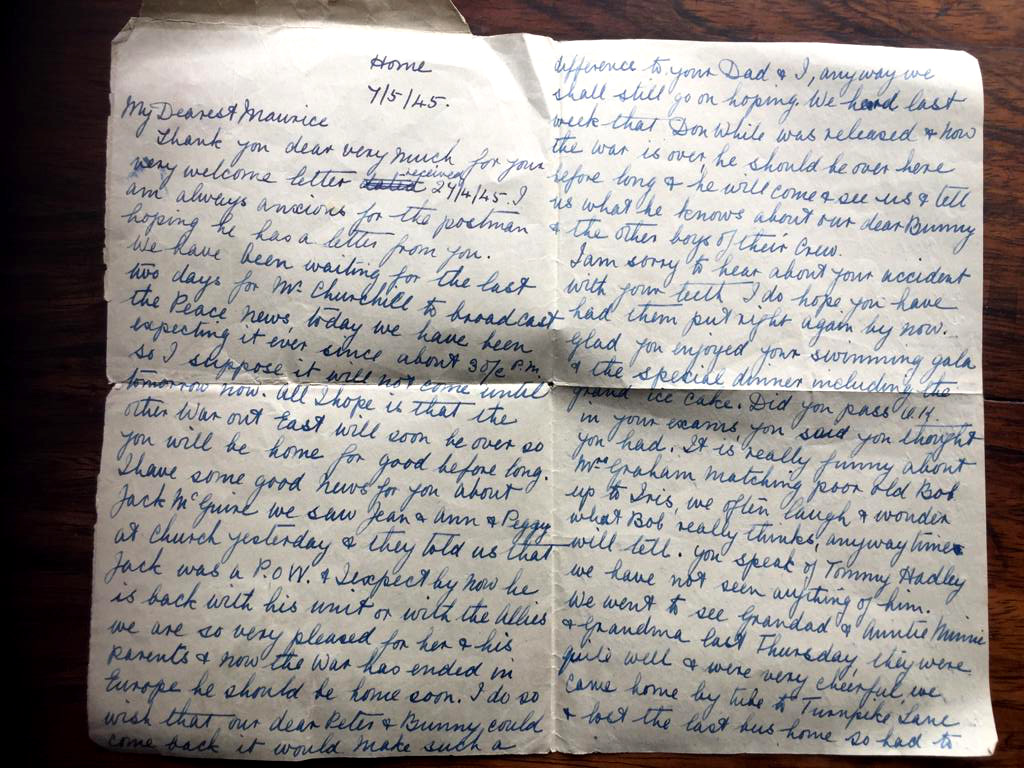 Home
7/5/45.
My Dearest Maurice
Thank you dear very much for your
very welcome letter dated received 27/4/45. I
am always anxious for the postman
hoping he has a letter from you.
We have been waiting for the last
two days for Mr. Churchill to broadcast
the Peace news, today we have been
expecting it ever since about 3 o/c P.M.
so I suppose it will not come until
tomorrow now. All I hope is that the
other War out East will soon be over so
you will be home for good before long.
I have some good news for you about
Jack McGuire we saw Jean & Ann & Peggy
at Church yesterday & they told us that
Jack was a P.O.W. & I expect by now he
is back with his unit or with the Allies
we are so very pleased for her & his
parents & now the War has ended in
Europe he should be home soon. I do so
wish that our dear Peter & Bunny could
come back it would make such a
difference to your Dad & I, anyway we
shall still go on hoping. We heard last
week that Don White was released & now
the war is over, he should be over here
before long & he will come & see us & tell
us what he knows about our dear Bunny
& the other boys of their Crew.
I am sorry to hear about your accident
with your teeth I do hope you have
had them put right again by now.
glad you enjoyed your swimming gala
& the special dinner including the
grand ice cake. Did you pass O.K.
in your exams, you said you thought
you had. It is really funny about
Mrs Graham matching poor old Bob
up to Iris, we often laugh & wonder
what Bob really thinks, anyway time
will tell. you speak of Tommy Hadley
we have not seen anything of him.
We went to see Grandad & Auntie Minnie
& Grandma last Thursday, they were
quite well & were very cheerful, we
came home by tube to Turnpike Lane
& lost the last bus home so had to